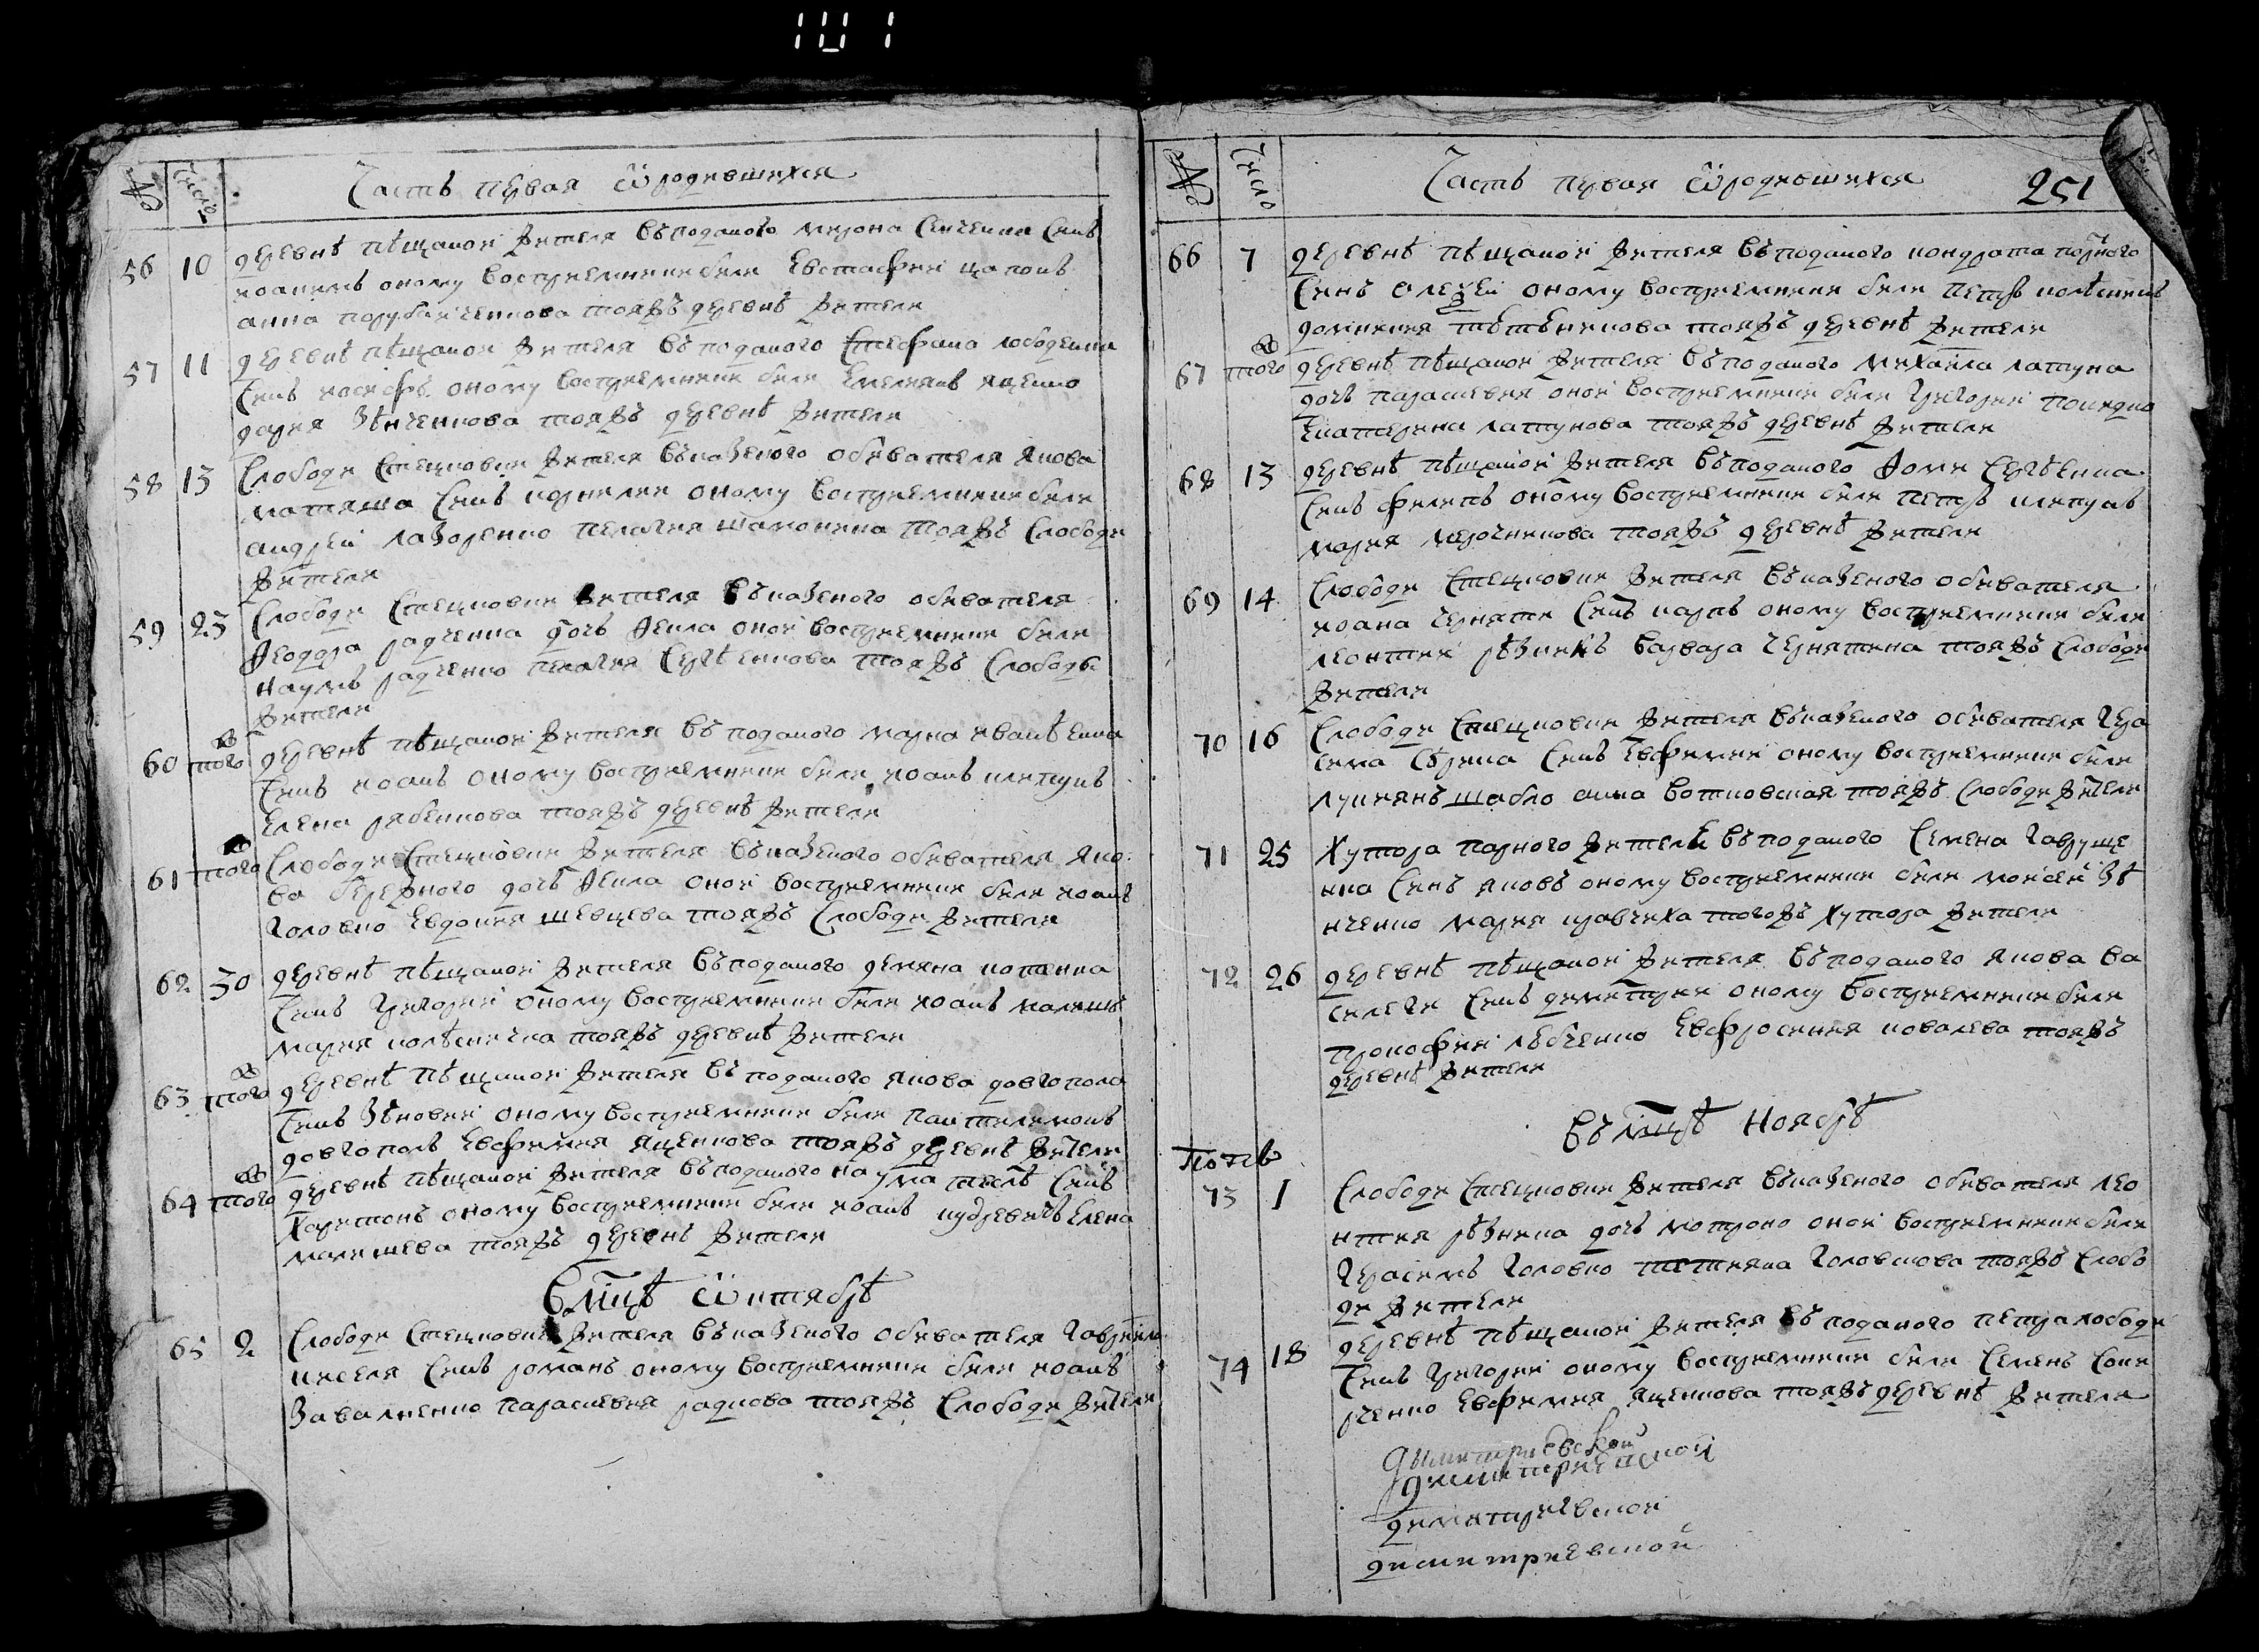 101
№ Число Часть первая ѿ родившихся
56 10 деревнѣ пѣщаной жителя въ поданого мирона сенченка синъ
иоакимъ оному восприемники били Евстафий цапонъ
анна порубайченкова тояжъ деревнѣ жители
57 11 деревнѣ пѣщаной жителя въ поданого Стефана лободенка
синъ иосифъ оному восприемники били Емелянъ яценко
дария Зѣнченкова тояжъ деревнѣ жители
58 13 Слободи Стецковки жителя въ казеного обивателя якова
матяша синъ корнилий оному восприемники били
андрей лазоренко пелагия шамонина тояжъ Слободи
жители
59 23 Слободи Стецковки жителя въ казеного обивателя
Ѳеодора радченка дочь Ѳекла оной восприемники били
Наумъ радченко пелагия Сергѣенкова тояжъ Слободы
жители
60 того деревнѣ пѣщаной жителя въ поданого марка ивашѣенка
синъ иоанъ оному восприемники били иоанъ клепунъ
Елена рябенкова тояжъ деревнѣ жители
61 того Слободи Стецковки жителя въ казеного обивателя яко
ва бережного дочь Ѳекла оной восприемники били иоанъ
Головко Евдокия шевцева тояжъ Слободи жители
62 30 деревнѣ пѣщаной жителя въ поданого демяна котенка
синъ Григорий оному восприемники били иоанъ малишъ
мария колѣсничка тояжъ деревнѣ жители
63 того деревнѣ пѣщаной жителя въ поданого якова довгопола
синъ Зѣновий оному восприемники били пантелемонъ
довгополъ Евфимия яценкова тояжъ деревнѣ жители
64 того деревнѣ пѣщаной жителя въ поданого наума синъ
Харитонъ оному восприемники били иоанъ Елена
малишева тояжъ деревнѣ жители
В мцѣ Ѿктябрѣ
65 2 Слободи Стецковки жителя въ казеного обивателя Гавриила
киселя синъ романъ оному восприемники били иоанъ
Завалненко параскевия радкова тояжъ Слободи жители
№ Число Часть первая ѿ родившихся 251
66 7 деревнѣ пѣщаной жителя въ поданого кондрата парного
синъ Олеѯей оному восприемники били петръ колѣсникъ
домникия тояжъ деревнѣ жители
67 того деревнѣ пѣщаной жителя въ поданого михаила лапуна
дочь параскевия оной восприемники били Григорий
Екатерина лапунова тояжъ деревнѣ жители
68 13 деревнѣ пѣщаной жителя въ поданого Ѳоми Сергѣенка
синъ филипъ оному восприемники били петръ клепунъ
мария мерочникова тояжъ деревнѣ жители
69 14 Слободи Стецковки жителя въ казеного обивателя
иоана черняти синъ карпъ оному восприемники били
леонтий рѣзникъ варвара чернятина тояжъ Слободи
жители
70 16 Слободи Стецковки жителя въ казеного обивателя Гера
сима Сѣрика синъ Евфимий оному восприемники били
лукиянъ шабло анна вотковская тояжъ Слободи жители
71 25 Хутора парного жителя въ поданого Семена Гавруще
нка синъ яковъ оному восприемники били мойсей Зѣ
нченко мария кравчиха тогожъ Хутора жители
72 26 деревнѣ пѣщаной жителя въ поданого якова ва
силеги синъ димитрий оному восприемники били
прокофий лѣбченко Евфросиния ковалева тояжъ
деревнѣ жители
въ мцѣ Ноябрѣ
73 1 Слободи Стецковки жителя въ казеного обивателя лео
нтия рѣзника дочь мотроно оной восприемники били
Герасимъ Головко тетияна Головкова тояжъ Слобо
ди жители
74 18 деревнѣ пѣщаной жителя въ поданого петра лободи
синъ Григорий оному восприемники били Семенъ Соки
рченко Евфимия яценкова тояжъ деревнѣ жители
димитриевской
димитриевской
димитриевской
димитриевской